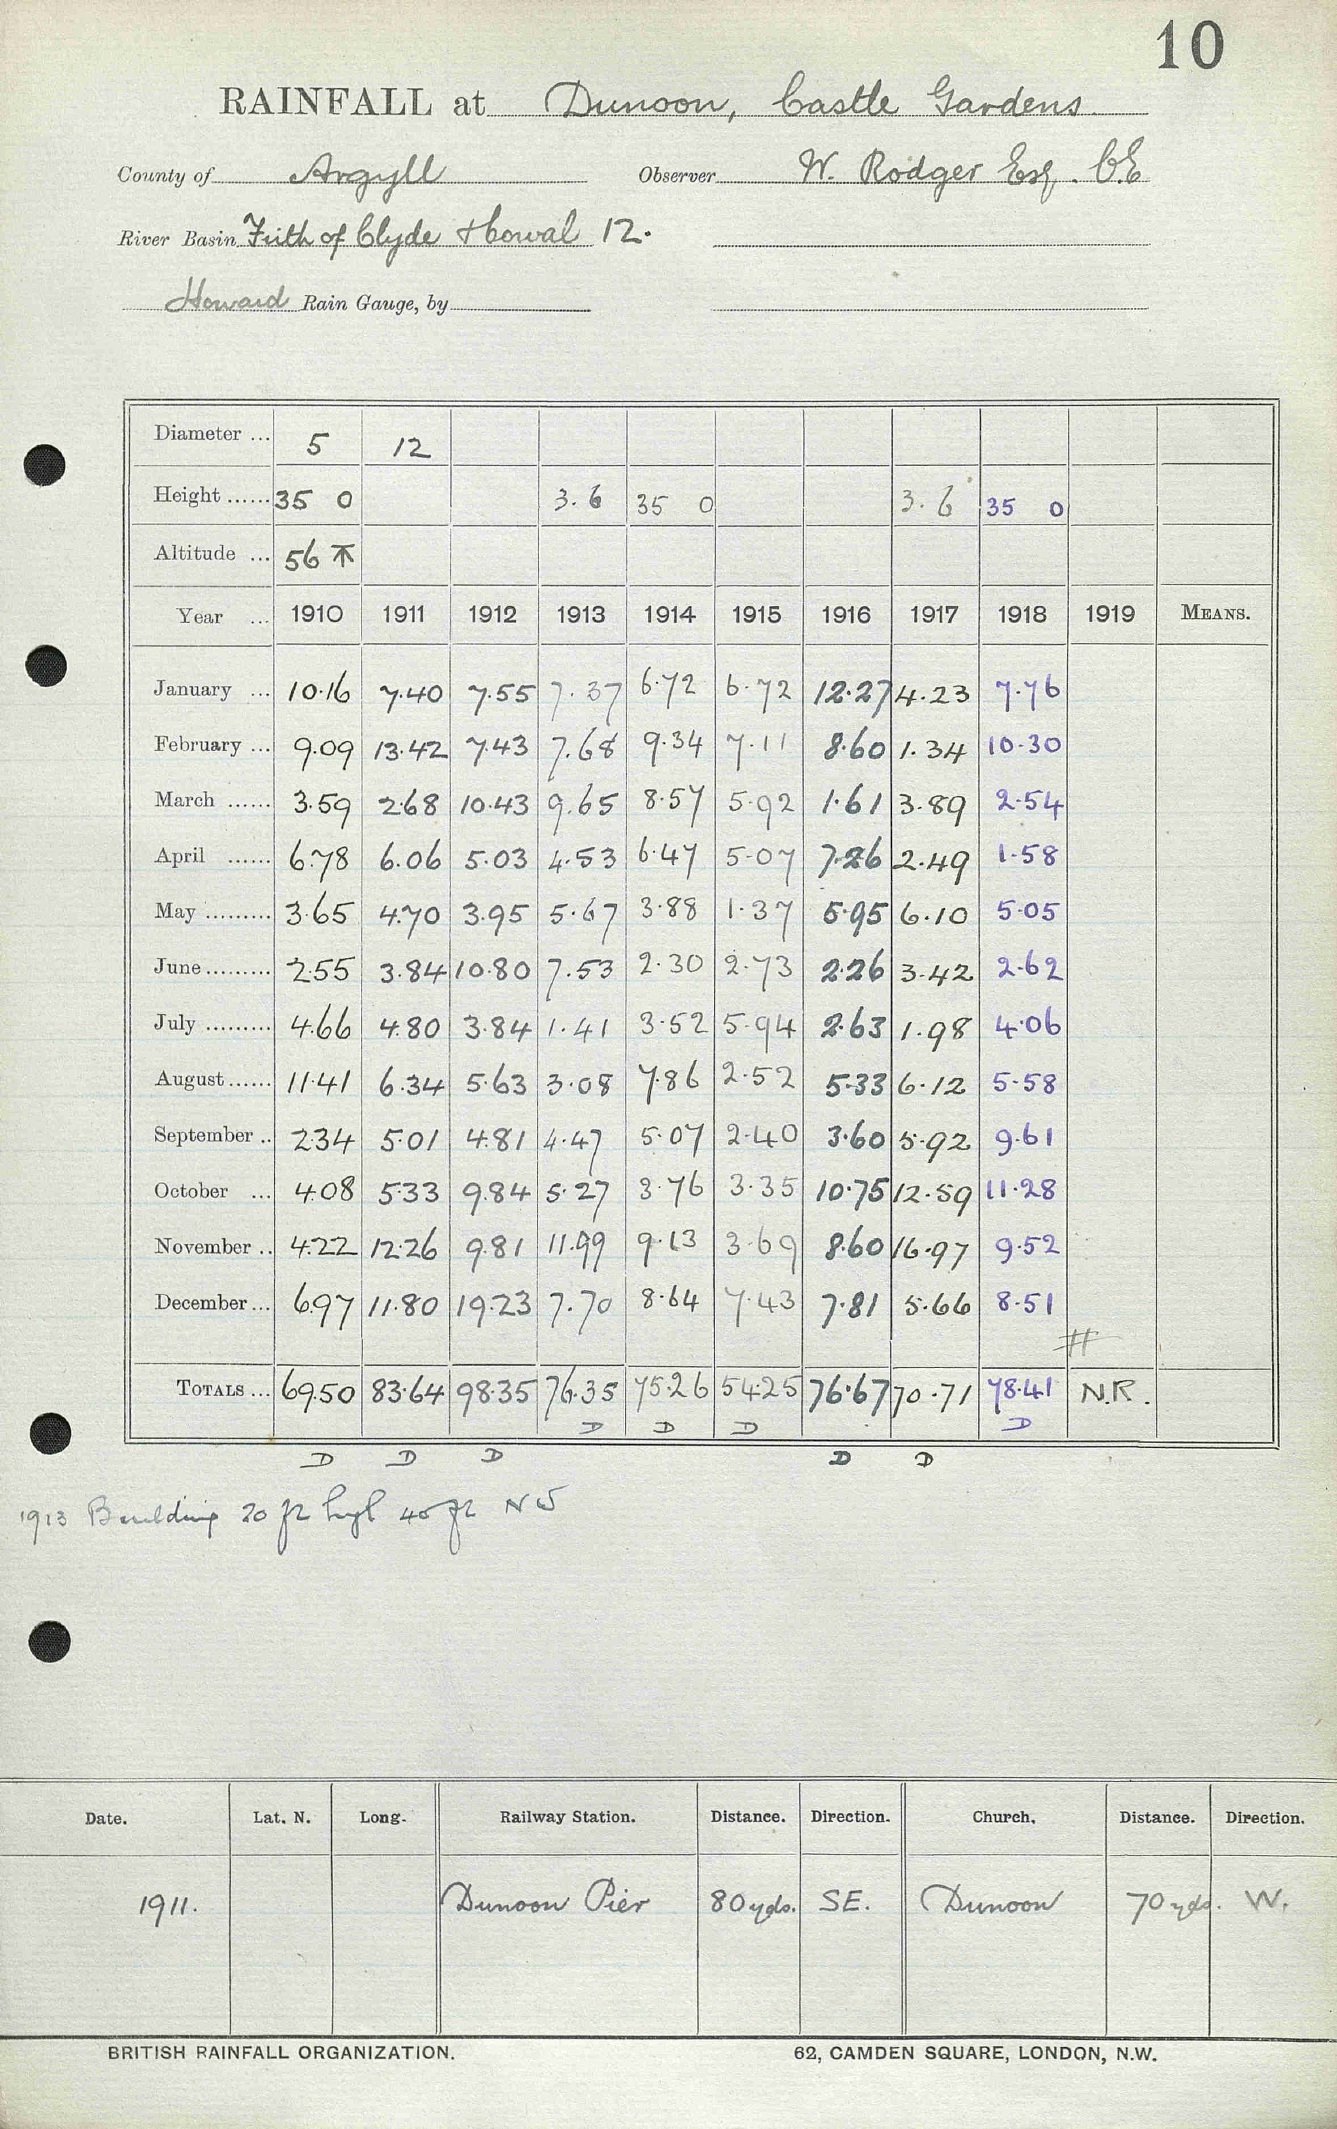 10
RAINFALL at Dunoon, Castle Gardens.
County of Argyll Observer W. Rodger Esq. C.E
River Basin Frith of Clyde & Cowal 12.
Howard Rain Gauge, by
Diameter ... 5 12
Height ...... 35 0 3.6 35 0 3.6 35 0
Altitude ... 56
Year ... 1910 1911 1912 1913 1914 1915 1916 1917 1918 1919 MEANS.
January ... 10.16 7.40 7.55 7.37 6.72 6.72 12.27 4.23 7.76
February ... 9.09 13.42 7.43 7.68 9.34 7.11 8.60 1.34 10.30
March ...... 3.59 2.68 10.43 9.65 8.57 5.92 1.61 3.89 2.54
April ...... 6.78 6.06 5.03 4.53 6.47 5.07 7.26 2.49 1.58
May ......... 3.65 4.70 3.95 5.67 3.88 1.37 5.95 6.10 5.05
June ......... 2.55 3.84 10.80 7.53 2.30 2.73 2.26 3.42 2.62
July ......... 4.66 4.80 3.84 1.41 3.52 5.94 2.63 1.98 4.06
August ...... 11.41 6.34 5.63 3.08 7.86 2.52 5.33 6.12 5.58
September .. 2.34 5.01 4.81 4.47 5.07 2.40 3.60 5.92 9.61
October ... 4.08 5.33 9.84 5.27 3.76 3.35 10.75 12.59 11.28
November .. 4.22 12.26 9.81 11.99 9.13 3.69 8.60 16.97 9.52
December ... 6.97 11.80 19.23 7.70 8.64 7.43 7.81 5.66 8.51
#
TOTALS ... 69.50 83.64 98.35 76.35 75.26 54.25 76.67 70.71 78.41 N.R.
D D D D
D D D D D
1913 Building 20 ft high 40 ft NW
Date. Lat. N. Long. Railway Station. Distance. Direction. Church. Distance. Direction.
1911. Dunoon Pier 80 yds. SE. Dunoon 70 yds. W.
BRITISH RAINFALL ORGANIZATION. 62, CAMDEN SQUARE, LONDON, N.W.